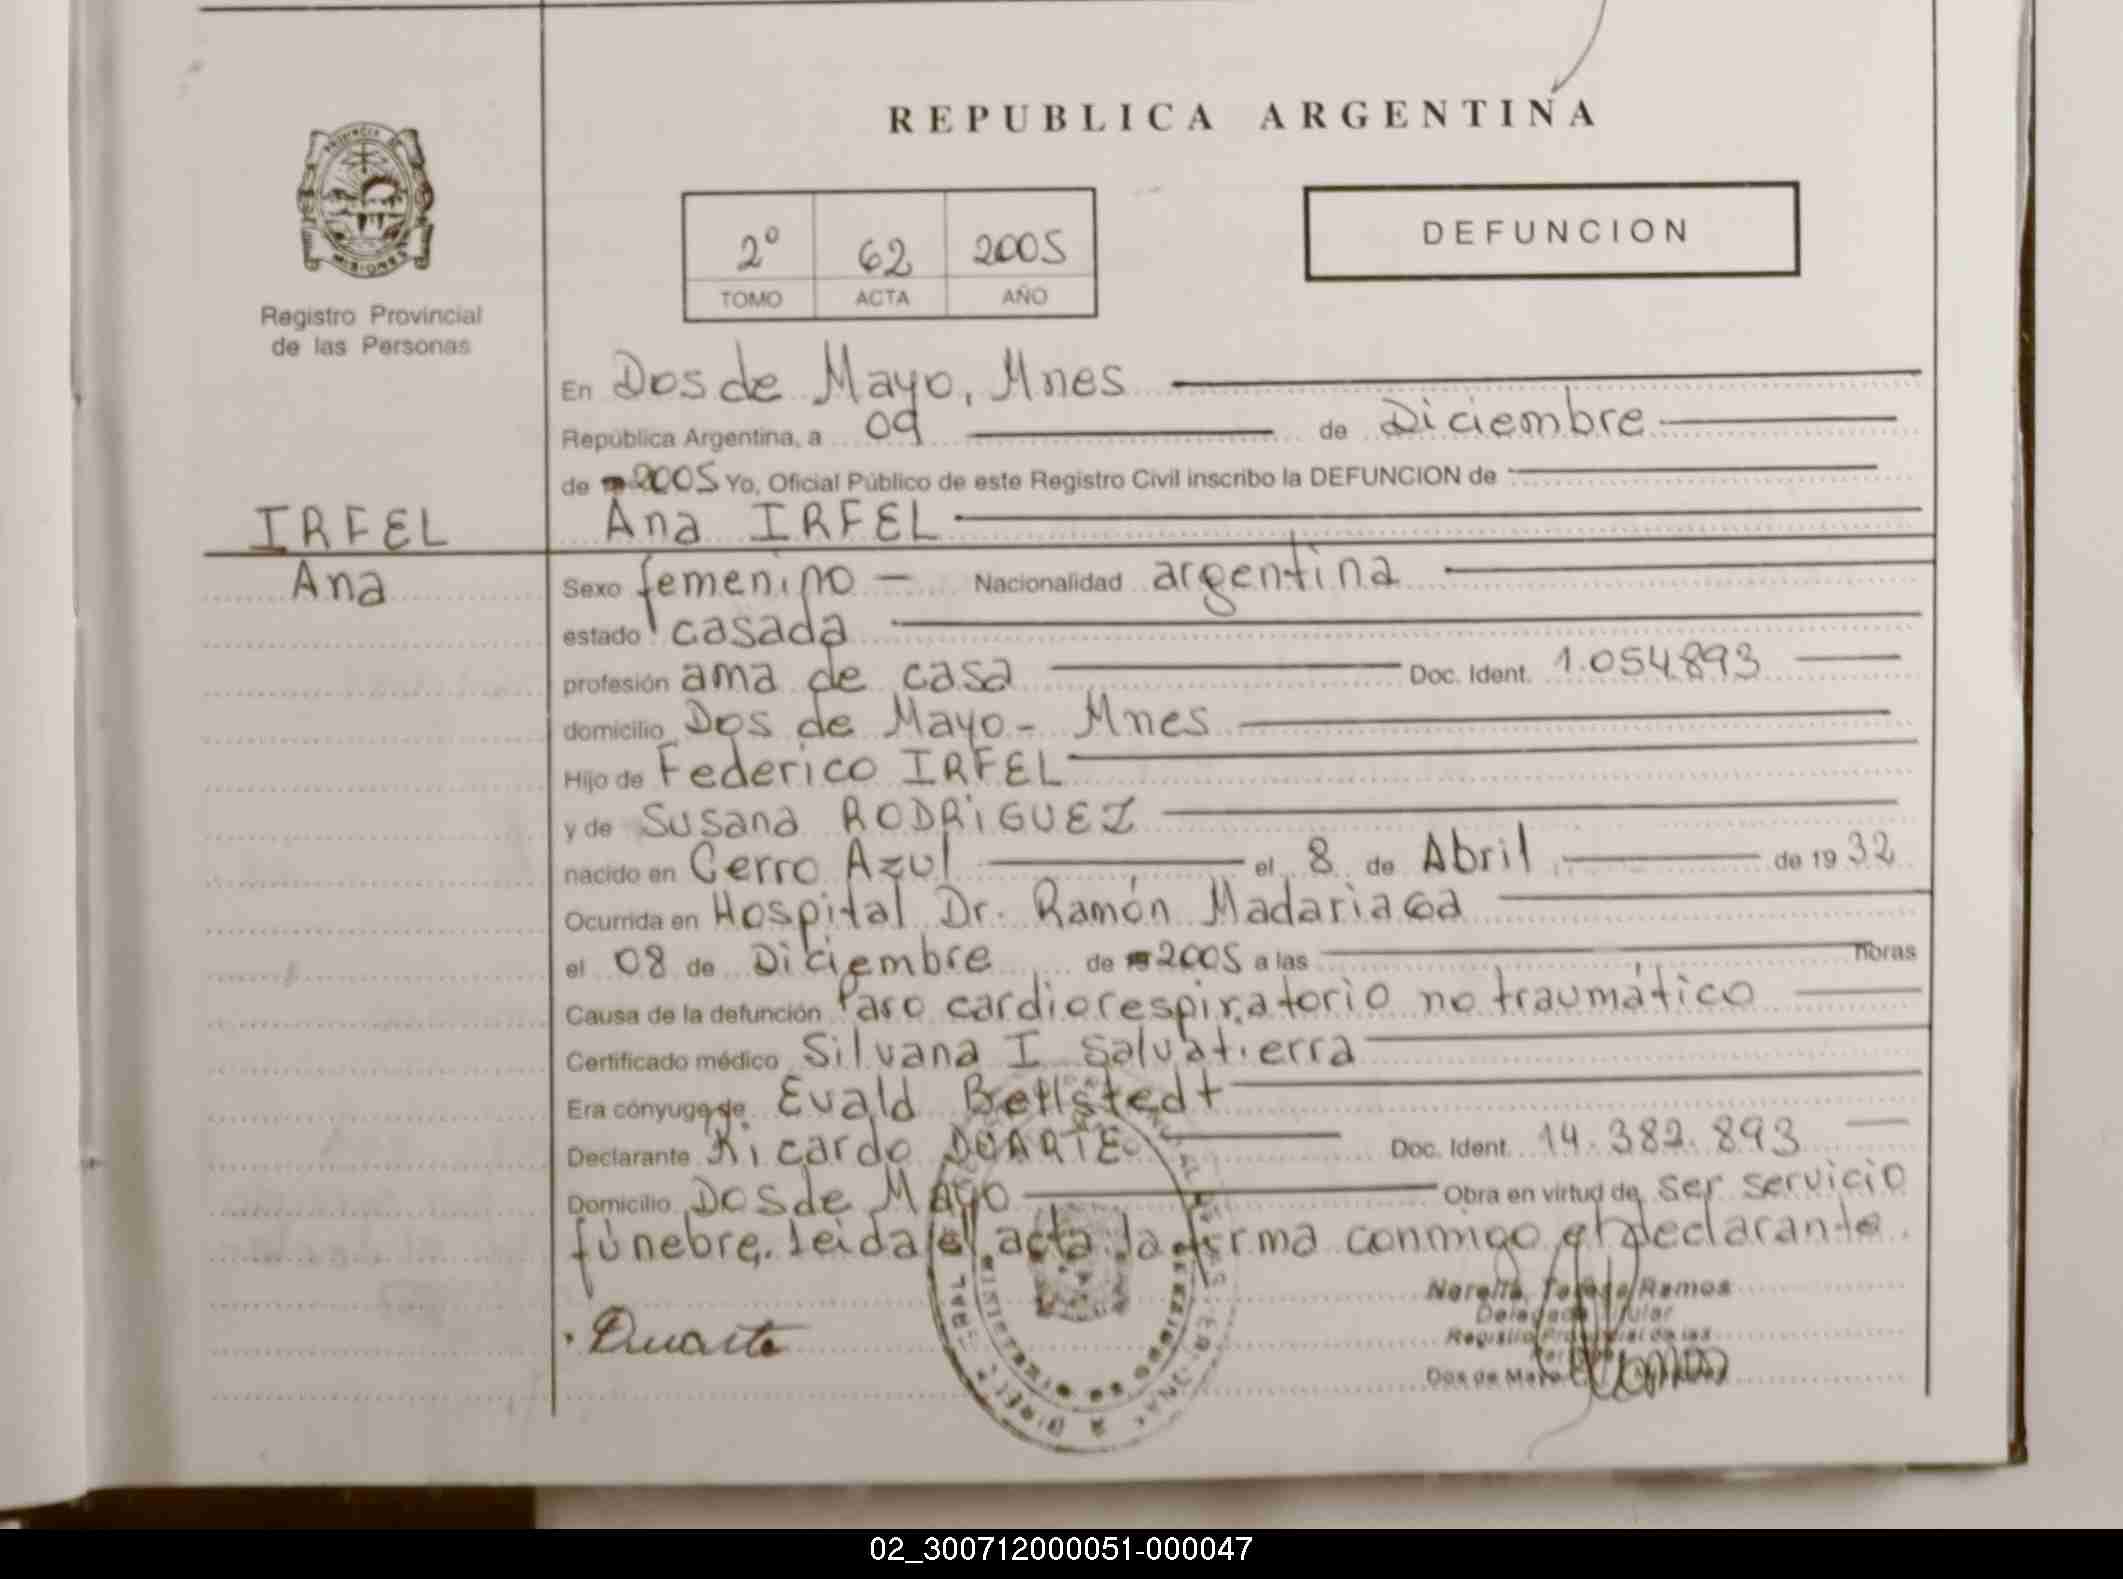 REPUBLICA ARGENTINA
PROVINCIA DE
MISIONES
Registro Provincial
de las Personas
2º 62 2005
TOMO ACTA AÑO
DEFUNCION
En Dos de Mayo, Mnes
República Argentina, a 09 de Diciembre
de 2005 Yo, Oficial Público de este Registro Civil inscribo la DEFUNCION de
IRFEL
Ana IRFEL
Ana
Sexo femenino - Nacionalidad argentina
estado casada
profesión ama de casa Doc. Ident. 1.054.893
domicilio Dos de Mayo - Mnes
Hijo de Federico IRFEL
y de Susana RODRIGUEZ
nacido en Cerro Azul el 8 de Abril de 1932
Ocurrida en Hospital Dr. Ramón Madariaga
el 08 de Diciembre de 2005 a las horas
Causa de la defunción Paro cardiorespiratorio no traumático
Certificado médico Silvana I Salvatierra
Era cónyuge de Evald Bettstedt
Declarante Ricardo DUARTE Doc. Ident. 14.382.893
Domicilio Dos de Mayo Obra en virtud de ser servicio
fúnebre. Leida el acta la firma conmigo el declarante.
Duarte
Ramos
Delegada Titular
Registro Provincial de las
Dos de Mayo
02_300712000051-000047